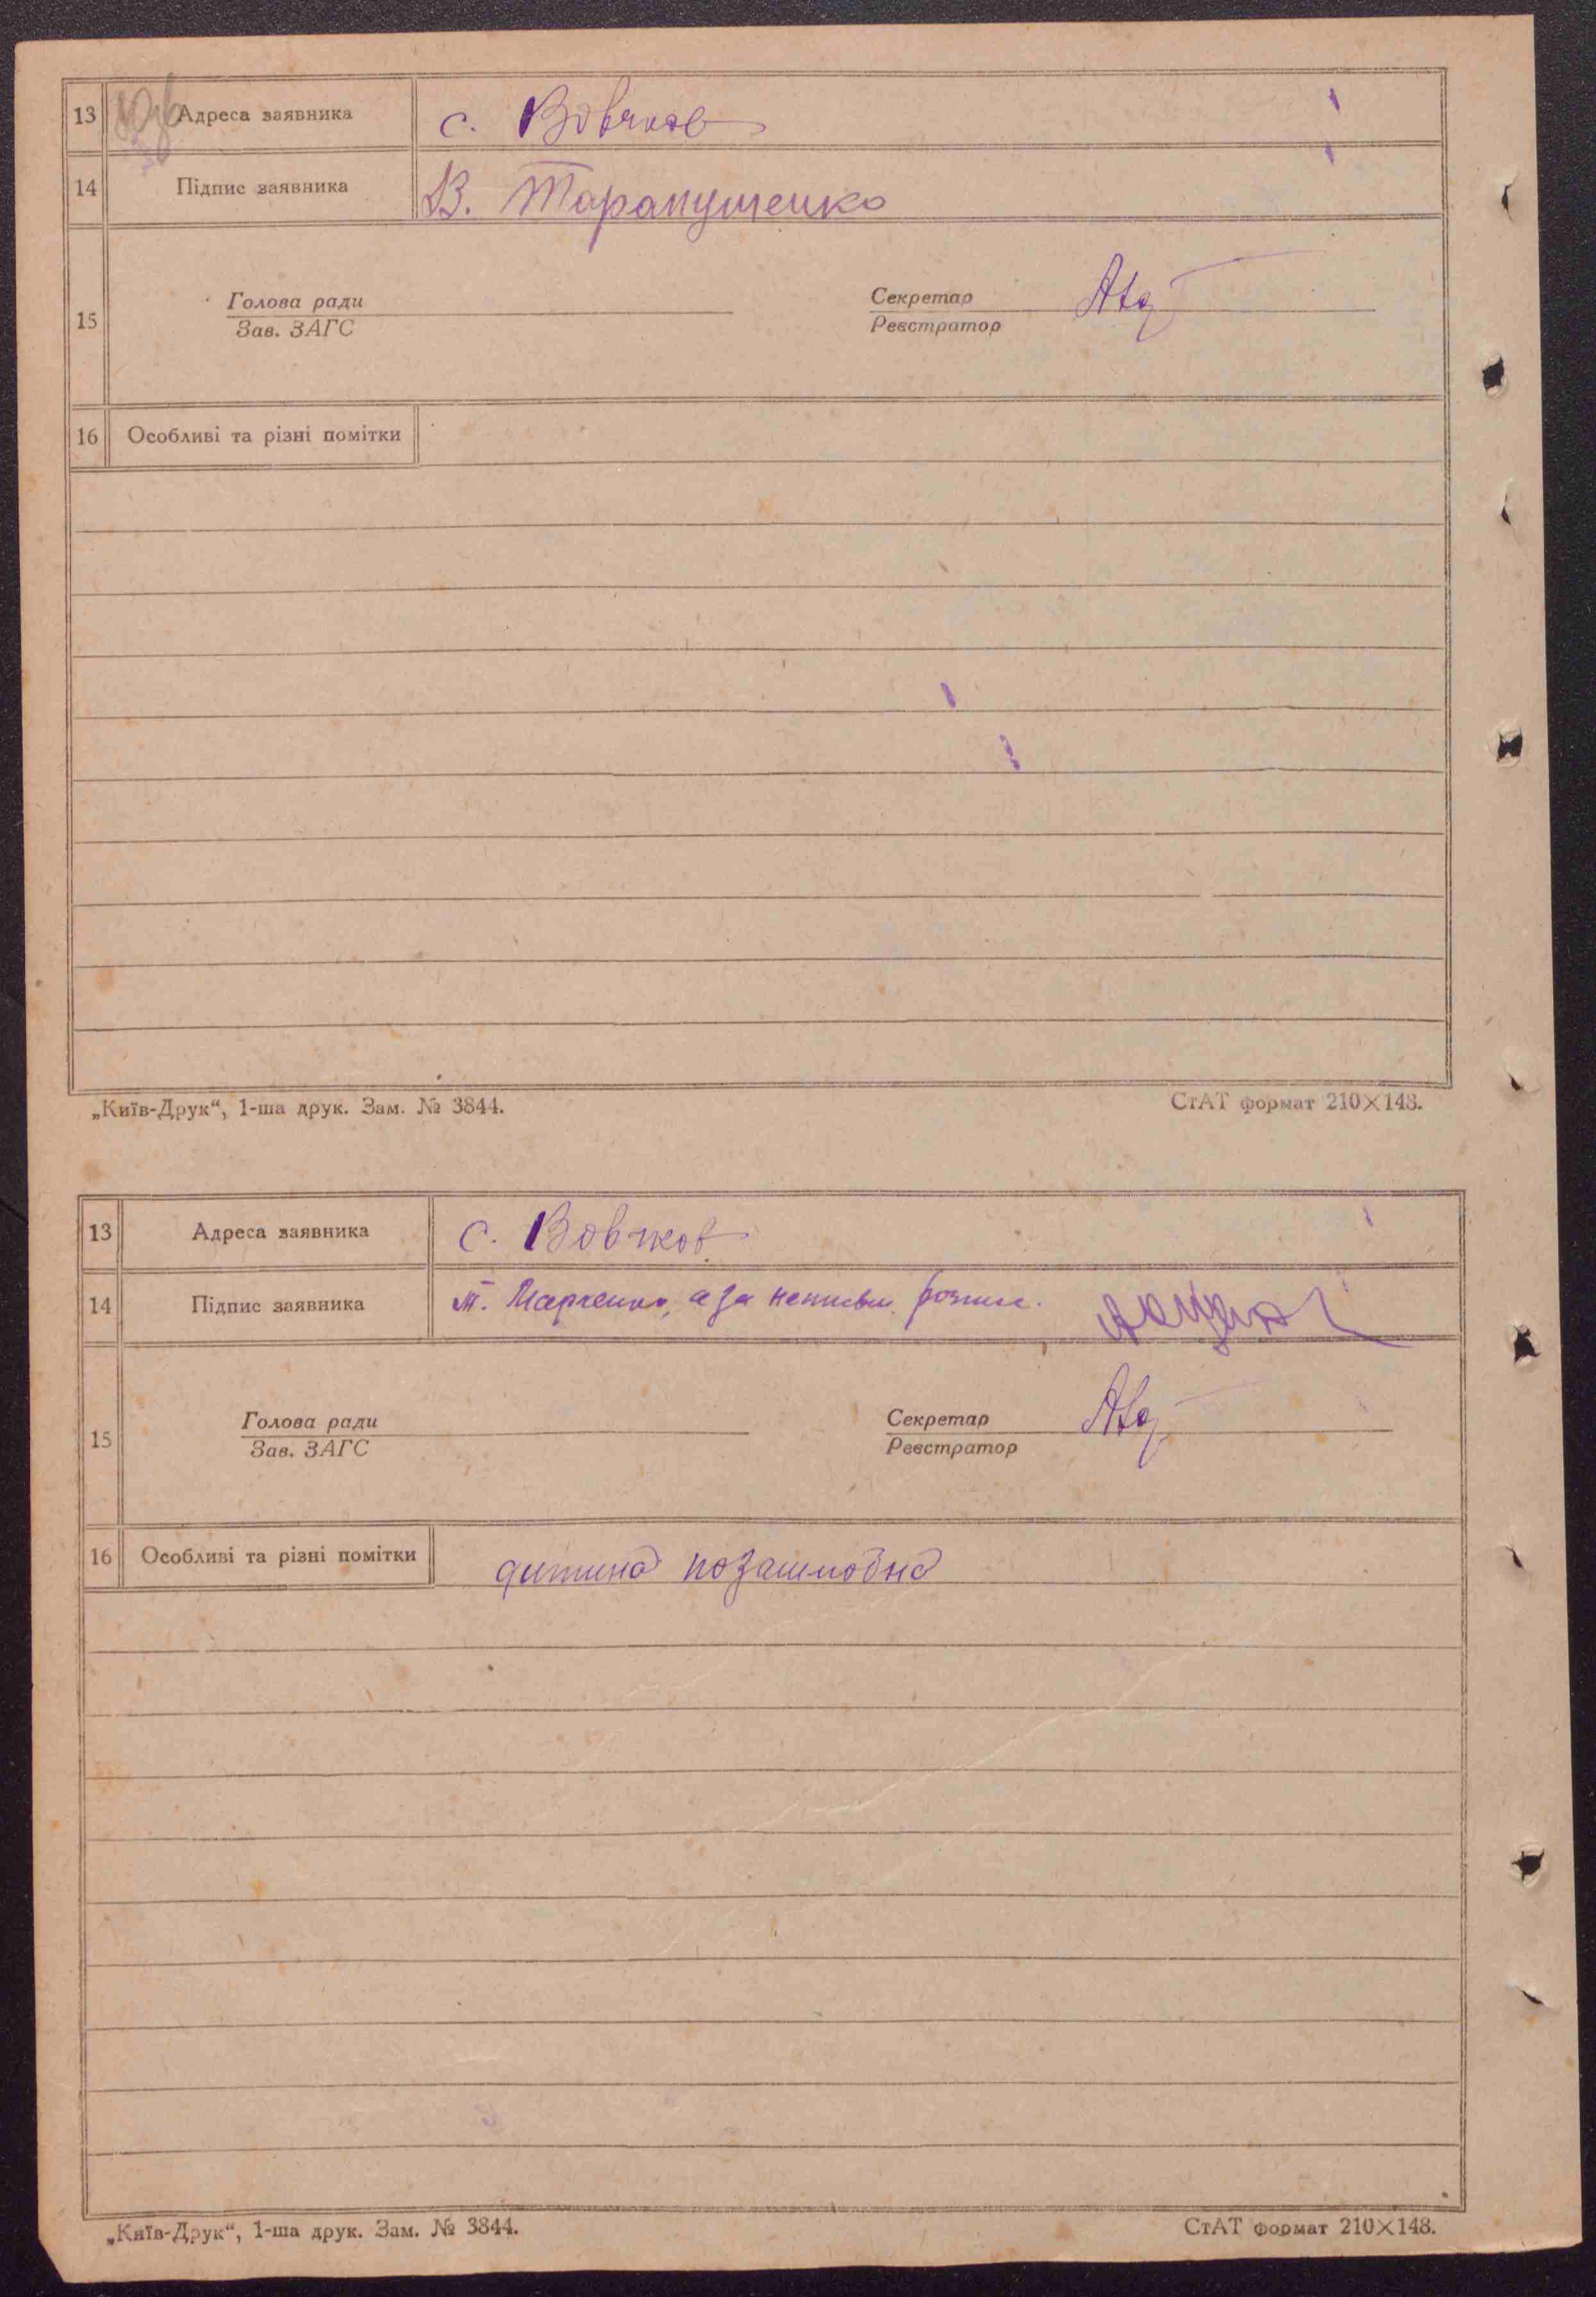 13 Адреса заявника с. Вовчков
14 Підпис заявника В. Тарапушенко
Голова ради Секретар
15
Зав. ЗАГС Реєстратор
16 Особливі та різні помітки
„Київ-Друк“, 1-ша друк. Зам. № 3844. СтАТ формат 210×148.
13 Адреса заявника с. Вовчков
14 Підпис заявника т. Марченко, а за неписьм. розпис.
Голова ради Секретар
15
Зав. ЗАГС Реєстратор
16 Особливі та різні помітки дитина позашлюбна
„Київ-Друк“, 1-ша друк. Зам. № 3844. СтАТ формат 210×148.